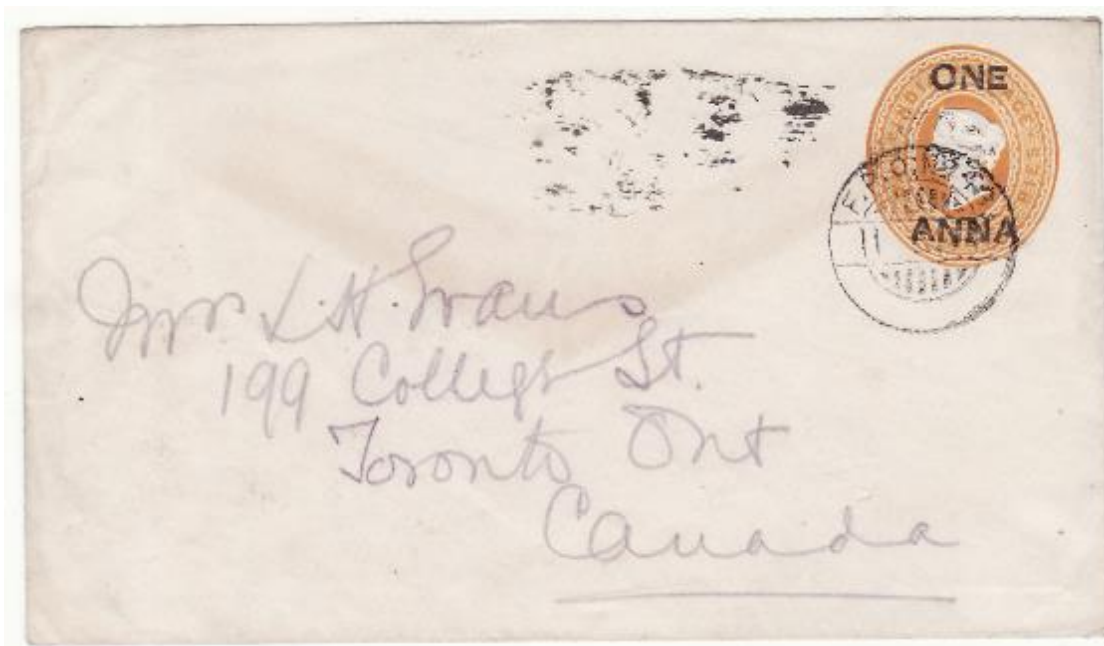 ONE
ANNA
Mrs. L. H. Evans
199 College St.
Toronto Ont
Canada